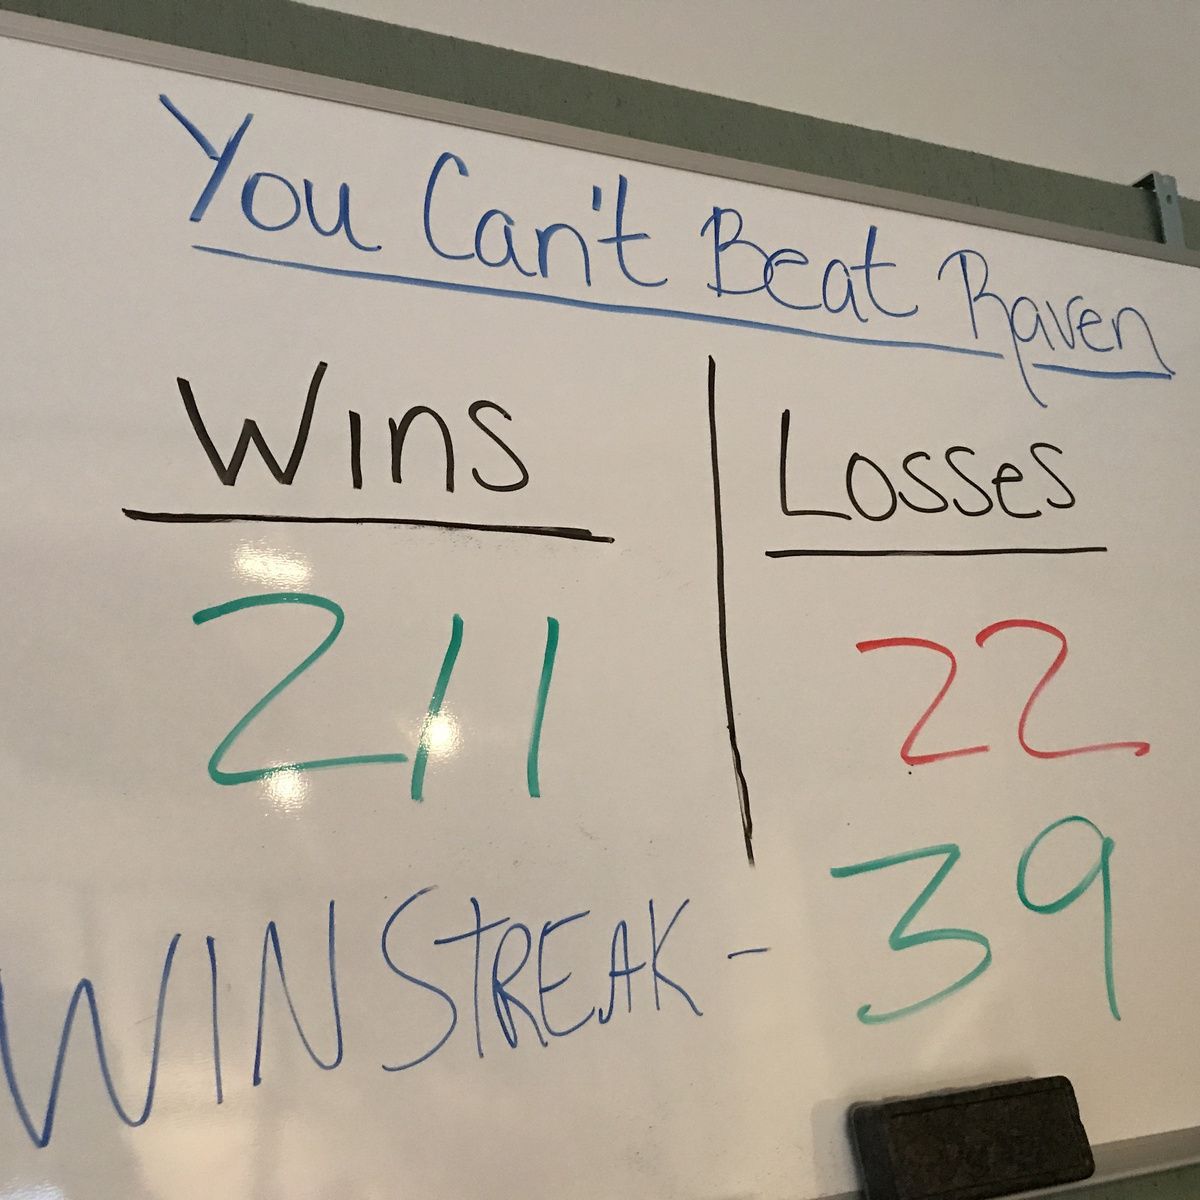 You Can't Beat Raven
Wins
Losses
211
22
WIN STREAK - 39